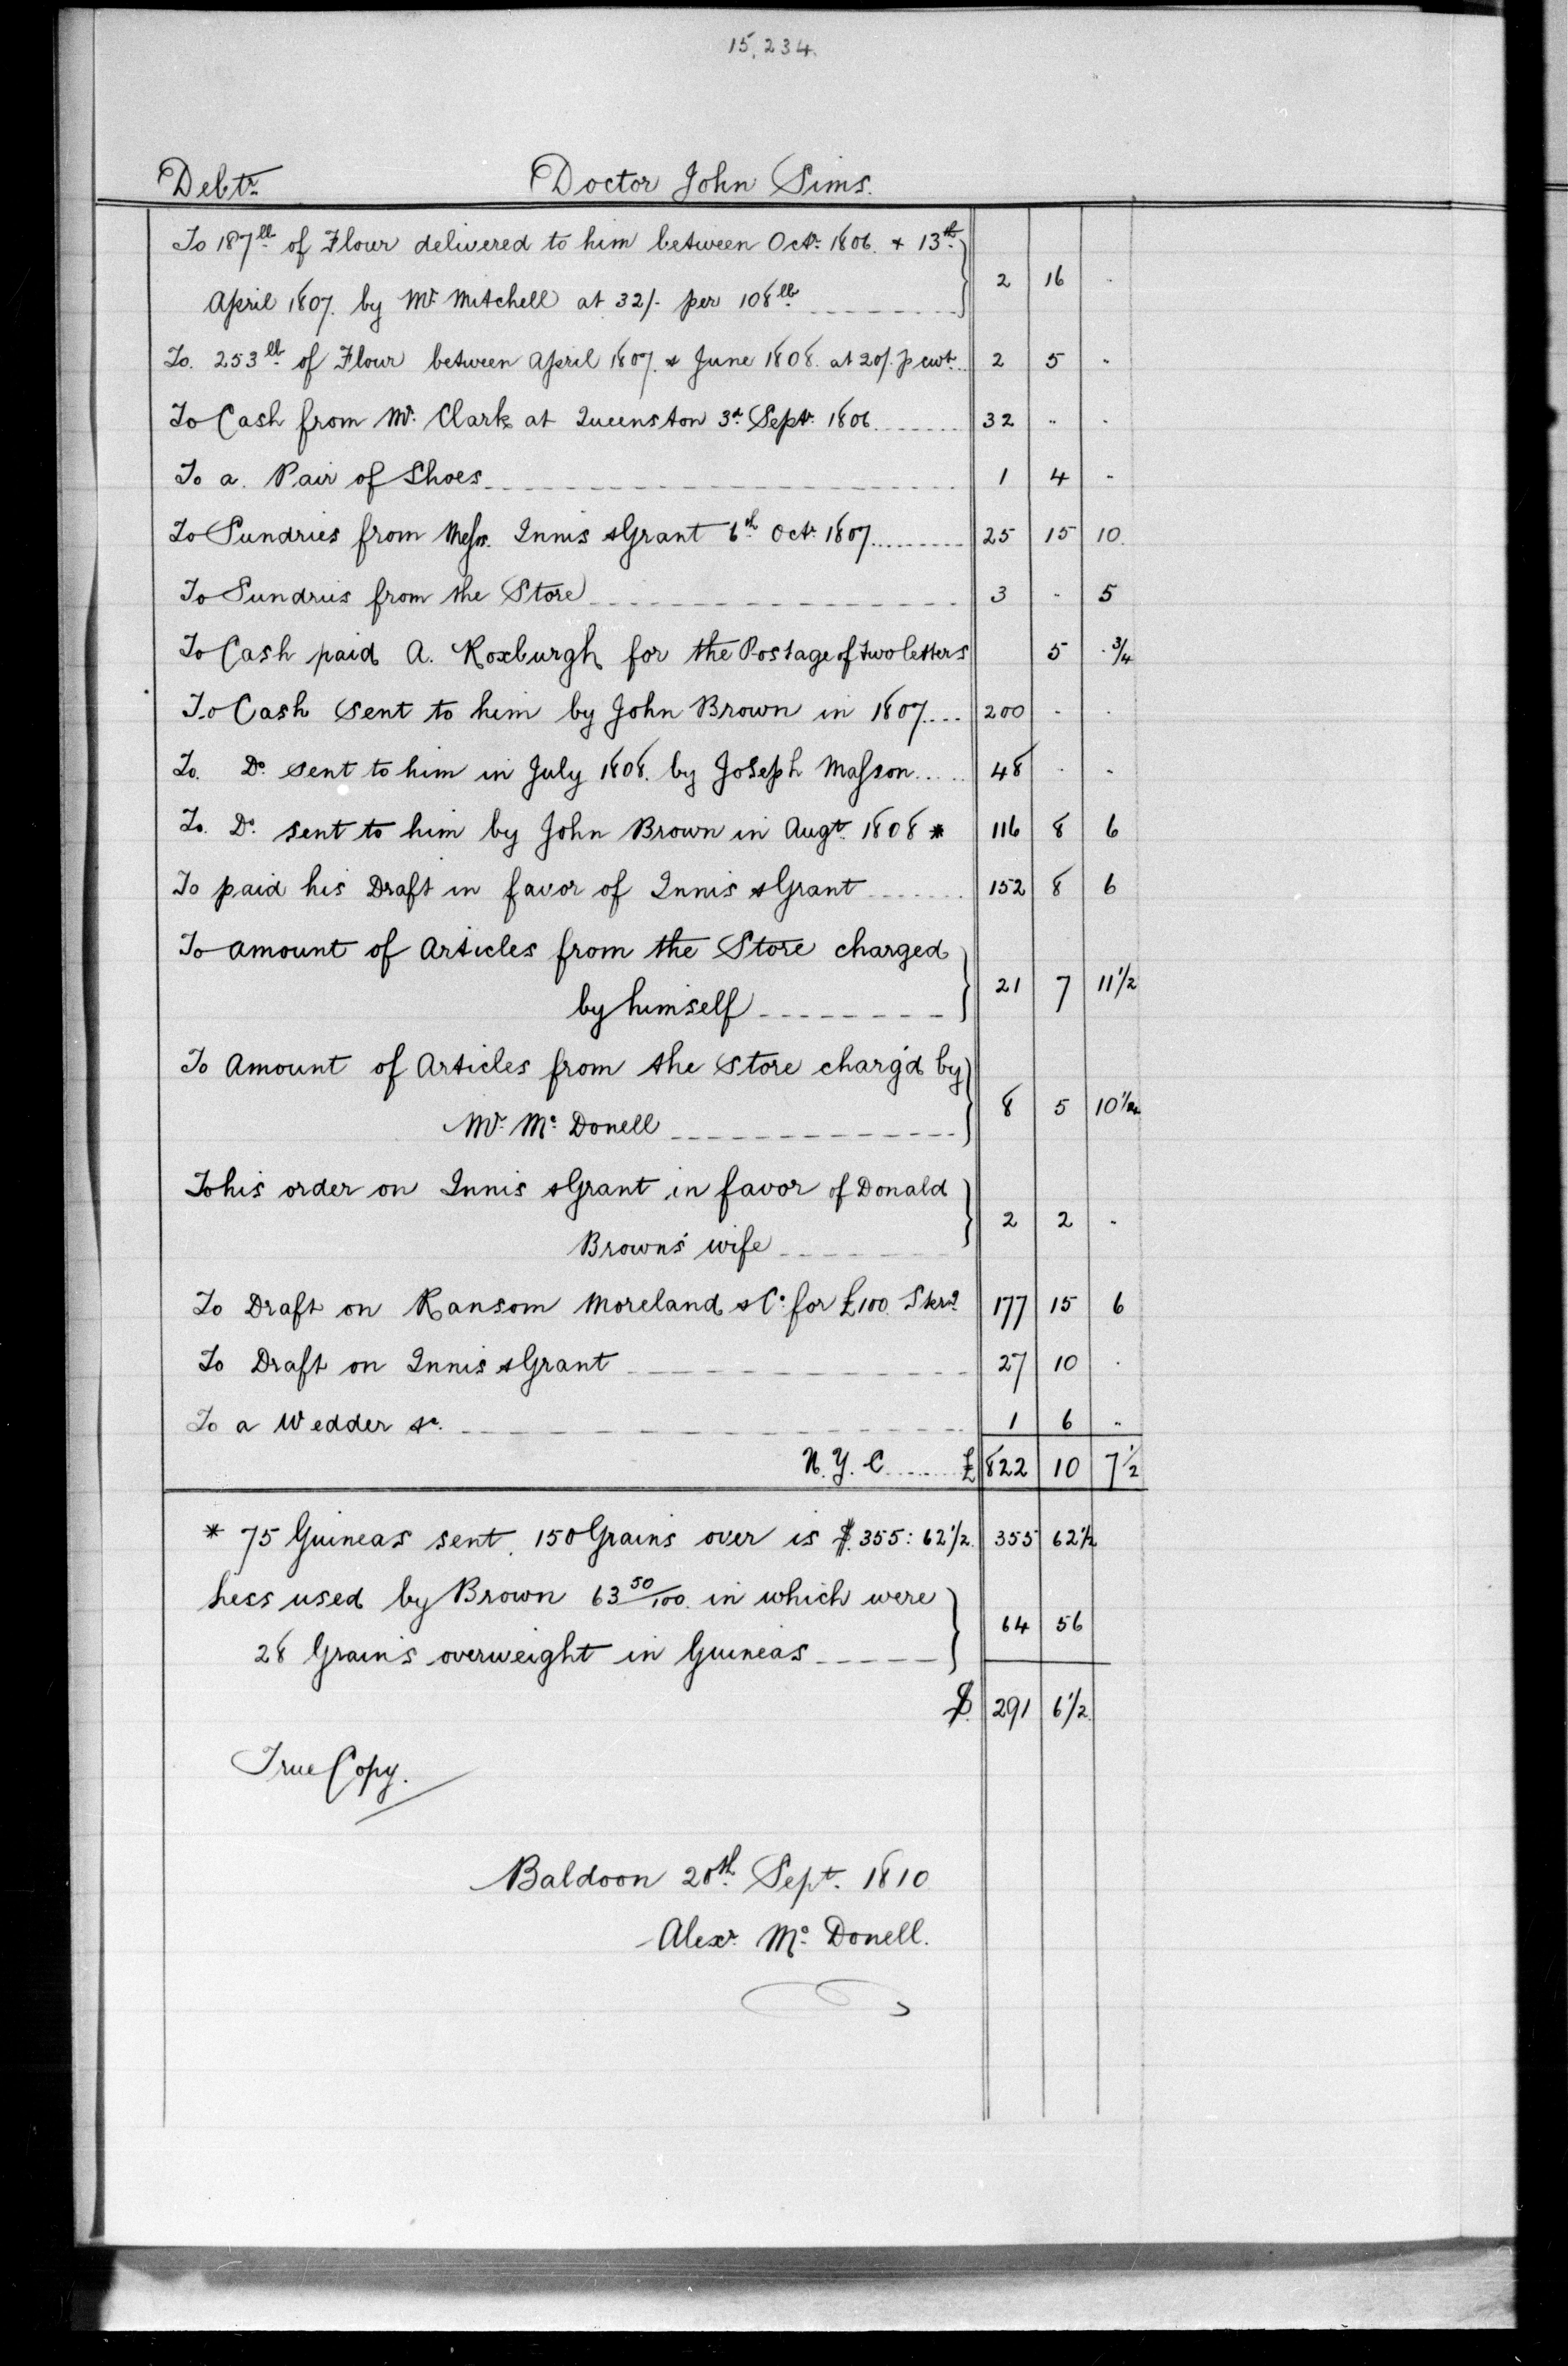 15,234.
Debtr. Doctor John Sims.
To 187 lb of Flour delivered to him between Octr. 1806. & 13th.
April 1807. by Mr. Mitchell at 32/- per 108 lb 2 16 -
To. 253 lb of Flour between April 1807. & June 1808. at 20/. p cwt. 2 5 -
To Cash from Mr. Clark at Queenston 3d. Septr. 1806 32 - -
To a. Pair of Shoes 1 4 -
To Sundries from Messrs. Innis & Grant 6th Octr. 1807 25 15 10.
To Sundries from the Store 3 - 5
To Cash paid A. Roxburgh for the Postage of two letters 5 . 3/4
To Cash sent to him by John Brown in 1807 200 - -
To. Do. sent to him in July 1808. by Joseph Masson 48 - -
To. Do. sent to him by John Brown in Augt. 1808 * 116 8 6
To paid his Draft in favor of Innis & Grant 152 8 6
To amount of Articles from the Store charged
by himself 21 7 11 1/2
To Amount of Articles from the Store charg'd by
Mr. Mc. Donell 8 5 10
To his order on Innis & Grant in favor of Donald
Brown's wife 2 2 -
To Draft on Ransom Moreland & Co. for £100. Sterg. 177 15 6
To Draft on Innis & Grant 27 10 .
To a Wedder &c. 1 6 -
N. Y. C £ 822 10 7 1/2
* 75 Guineas sent. 150 Grains over is $.355: 62 1/2. 355 62 1/2
Less used by Brown 63 50/100. in which were
28 Grains overweight in Guineas 64 56
$. 291 6 1/2.
True Copy.
Baldoon 20th. Sept. 1810
Alexr. Mc. Donell.